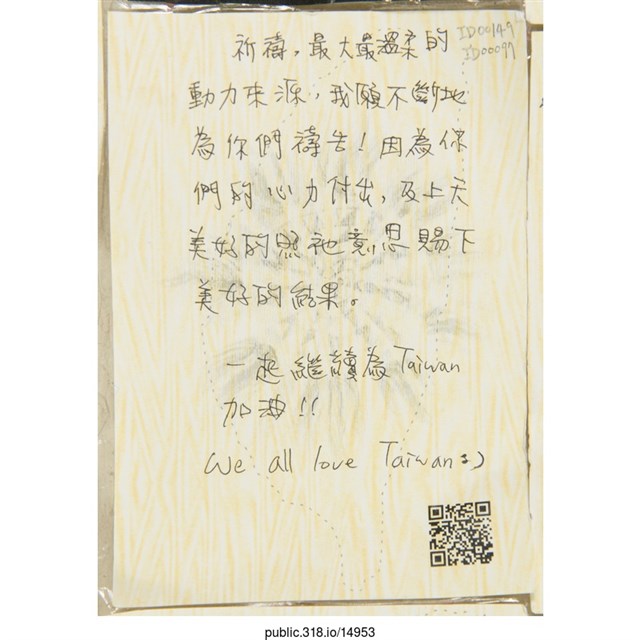 ID00149
ID00097
祈禱，最大最溫柔的
動力來源，我願不斷地
為你們禱告！因為你
們的心力付出，及上天
美好的照祂意思賜下
美好的結果。
一起繼續為Taiwan
加油!!
We all love Taiwan :)
public.318.io/14953